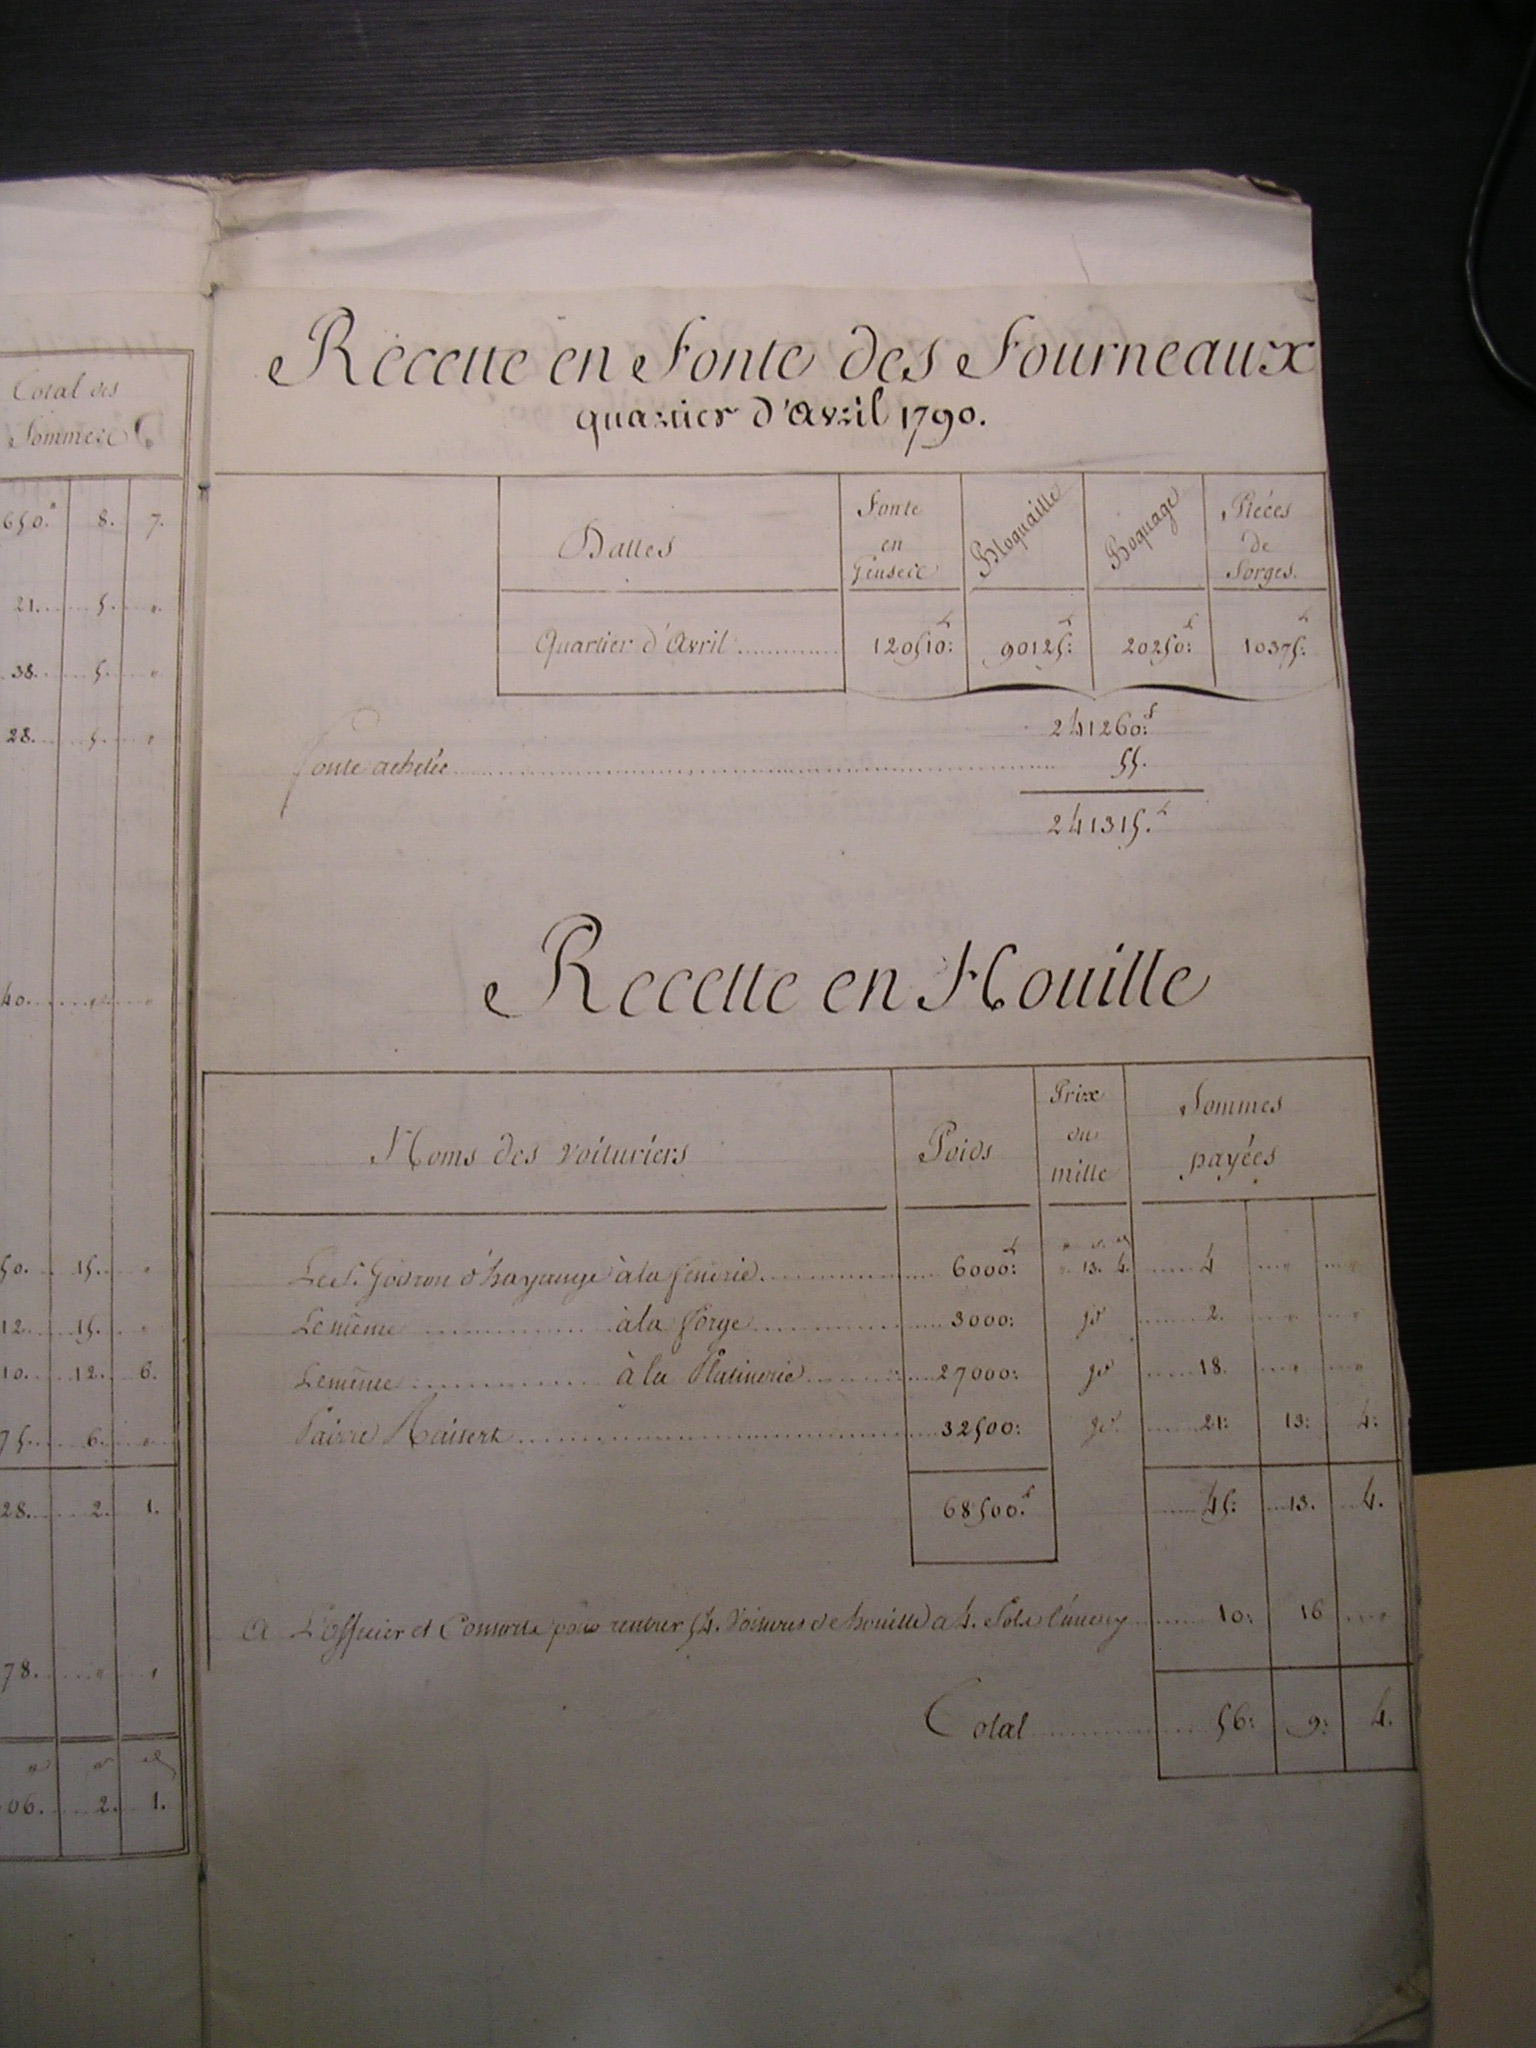 Total des
Sommes
650. 8. 7.
21. 5. "
38. 5. "
28. 5. "
40. " "
50. 15. "
12. 15. "
10. 12. 6.
75. 6. "
28. 2. 1.
78. " "
06. 2. 1.
Recette en Fonte des Fourneaux
quartier d'Avril 1790.
Dattes
Fonte en Geuses
Bloquaille
Boquage
Piéces de Forges.
Quartier d'Avril 120510: 90125: 20250: 10375:
241260:
fonte achetée 55.
241315.
Recette en Houille
Noms des Voituriers
Poids
Prix du mille
Sommes payées
Le S. Godron d'hayange à la fenderie 6000: " 13. 4. 4 " "
Le même à la forge 3000: do 2. " "
Le même à la Platinerie 27000: do 18. " "
Pierre 32500: do 21: 13: 4:
68500. 45: 13. 4.
A L'officier et Consorts pour rentrer 54. Voitures de houille a 4. Sols 10: 16 "
Total 56: 9: 4.